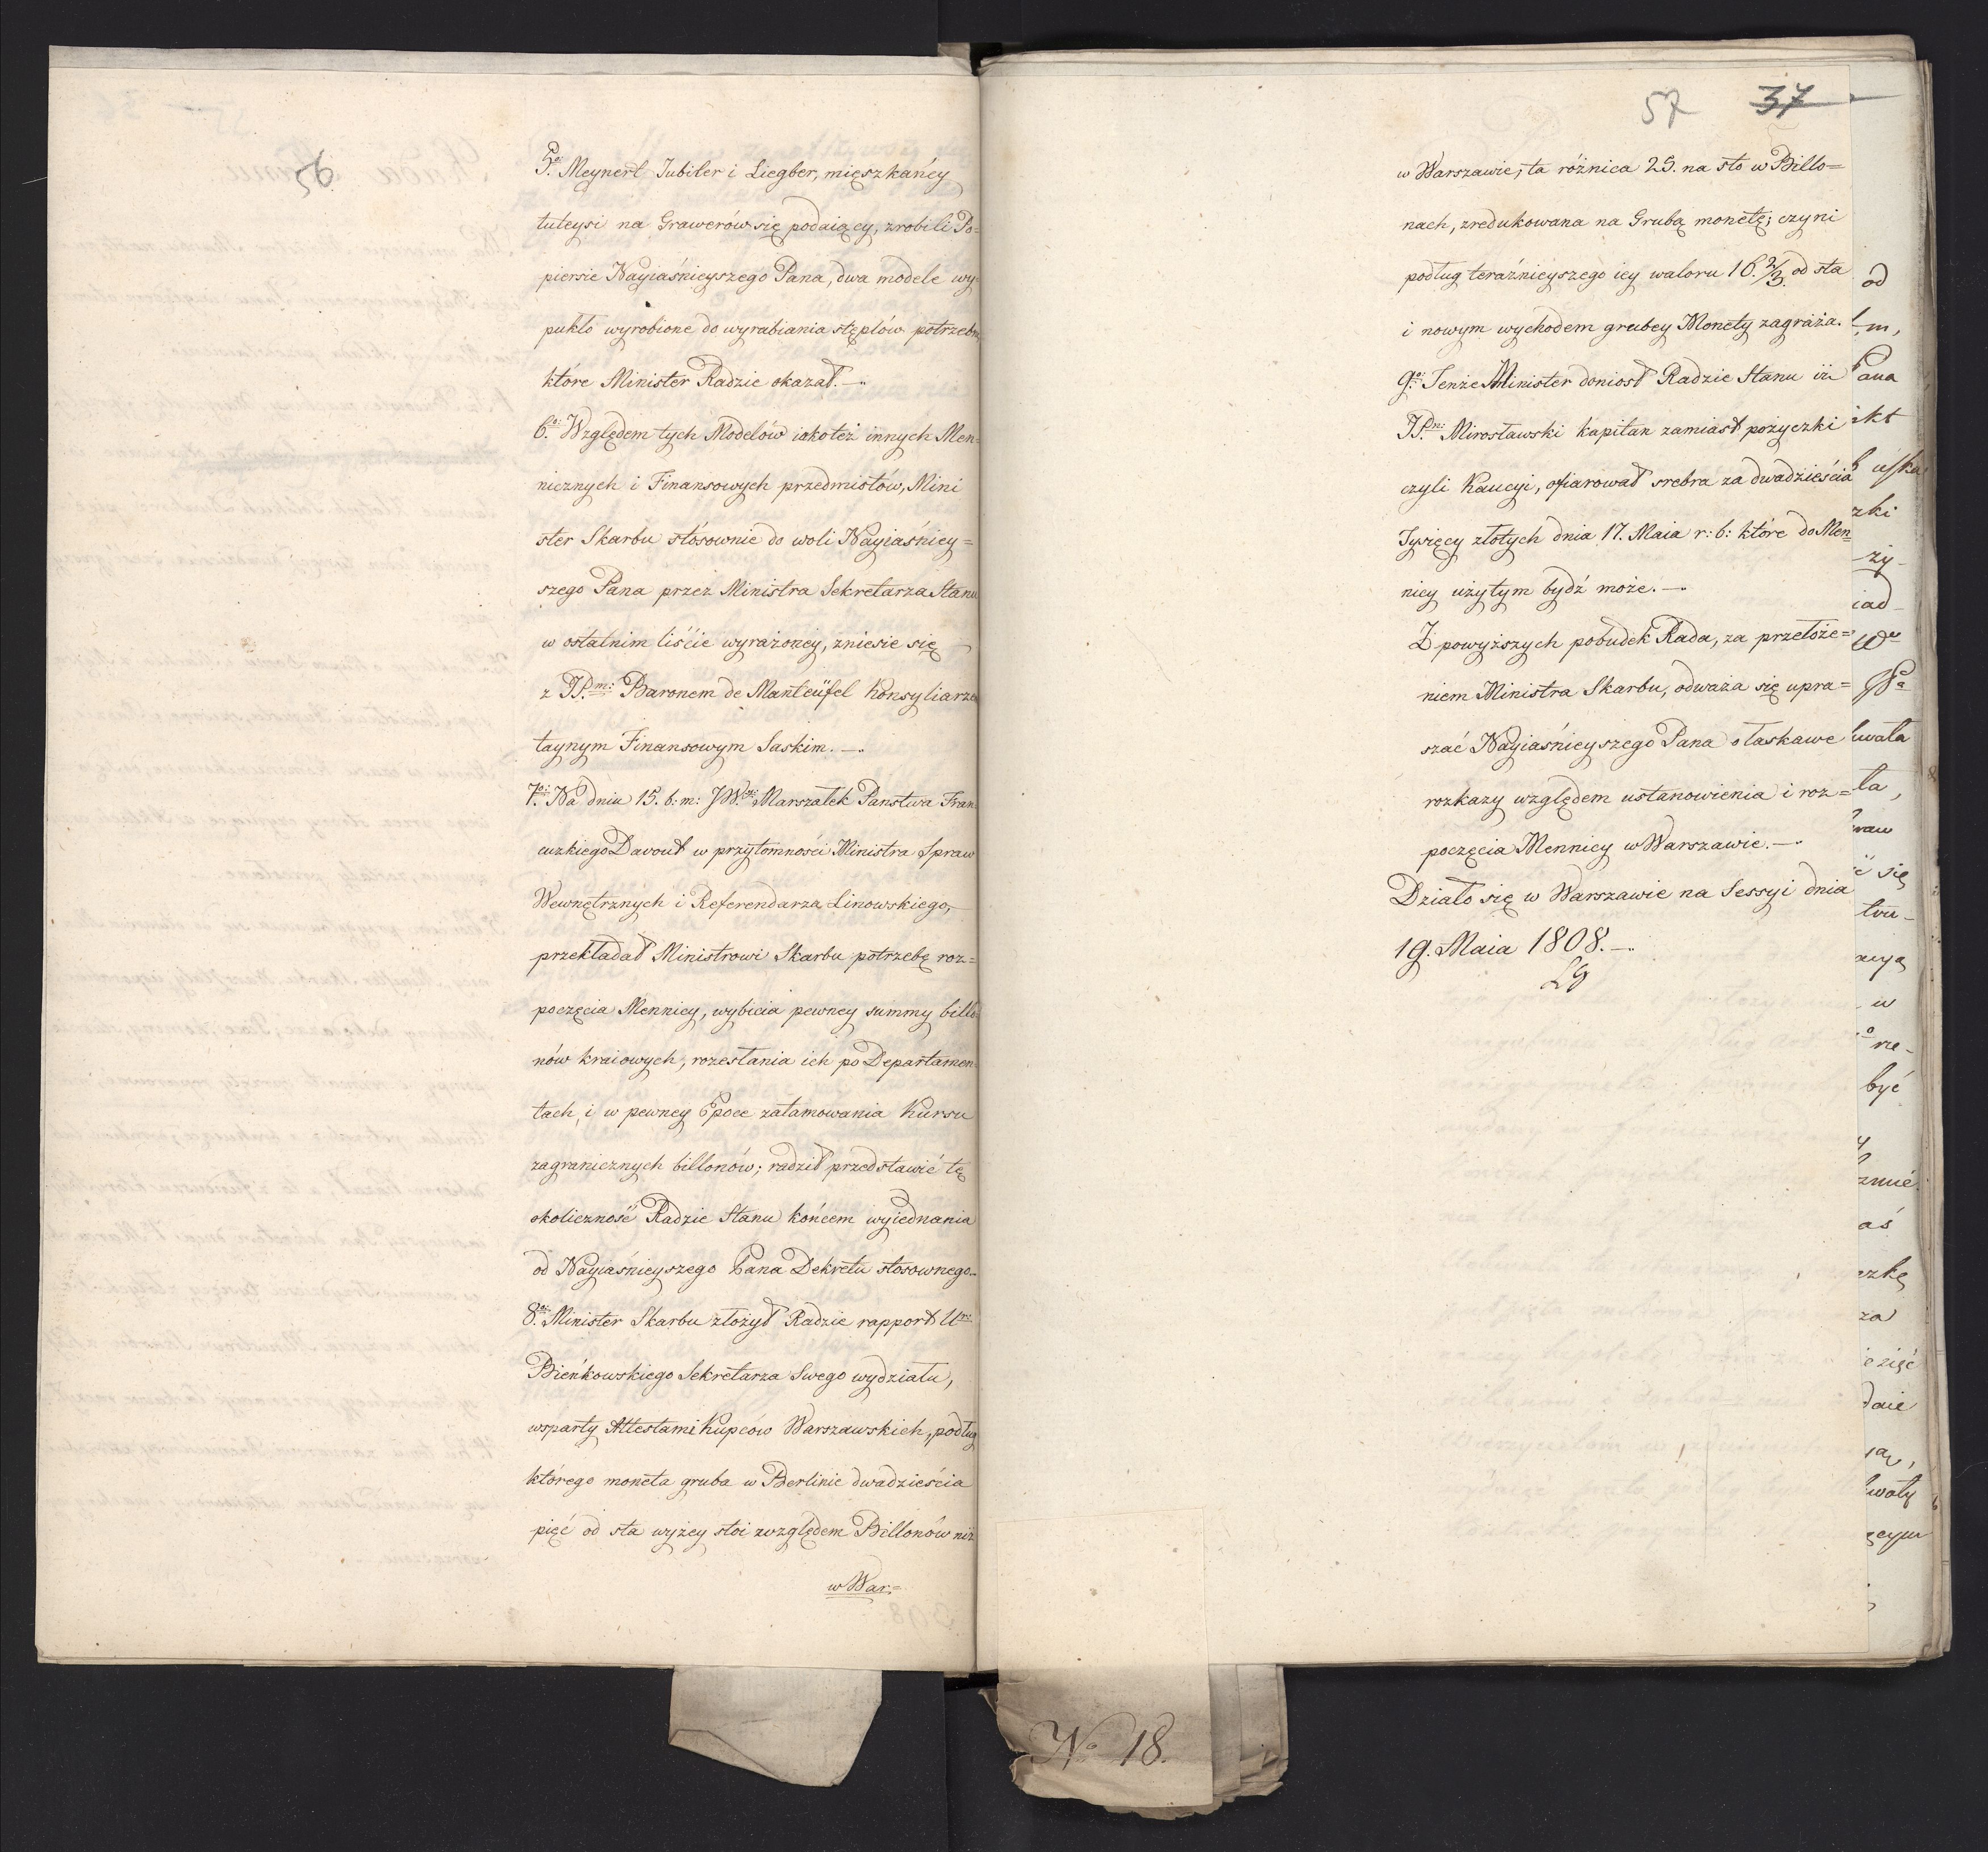 56
5to: Meynert Jubiler i Liegber, mięszkańcy
tuteysi na Grawerów się podaiący, zrobili Po=
piersie Nayiaśnieyszego Pana, dwa modele wy=
pukło wyrobione do wyrabiania stęplów potrzebne
które Minister Radzie okazał.—.
6to: Względem tych Modelów iakoteż innych Men=
nicznych i Finansowych przedmiotów, Mini
ster Skarbu stósownie do woli Nayiaśniey=
szego Pana przez Ministra Sekretarza Stanu
w ostatnim liście wyrażoney, zniesie się
z JP.m: Baronem de Manteüfel Konsyliarzem
taynym Finansowym Saskim.—.
7o: Na dniu 15. b: m: JW.ny Marszałek Panstwa Fran=
cuzkiego Davout w przytomności Ministra Spraw
Wewnętrznych i Referendarza Linowskiego,
przekładał Ministrowi Skarbu potrzebę roz=
poczęcia Mennicy, wybicia pewney summy billo=
nów kraiowych, rozesłania ich po Departamen=
tach, i w pewney Epoce zatamowania Kursu
zagranicznych billonów; radził przedstawić tę
okoliczność Radzie Stanu końcem wyiednania
od Nayiaśnieyszego Pana Dekretu stosownego.
8o: Minister Skarbu złożył Radzie rapport Ur:
Bieńkowskiego Sekretarza Swego wydziału,
wsparty Attestami Kupców Warszawskich, podług
którego moneta gruba w Berlinie dwadzieścia
pięć od sta wyżey stoi względem Billonów niż
w War=
57 37
w Warszawie; ta różnica 25. na sto w Billo=
nach, zredukowana na Grubą monetę; czyni
podług teraźnieyszego iey waloru 16 2/3 od sta
i nowym wychodem grubey Monety zagraża.
9o: Tenże Minister doniosł Radzie Stanu iż
JP.n: Mirosławski Kapitan zamiast pożyczki
czyli Kaucyi, ofiarował srebra za dwadzieścia
Tysięcy złotych dnia 17. Maia r: b: które do Men=
nicy użytym bydź może.—.
Z powyższych pobudek Rada, za przełoże=
niem Ministra Skarbu, odważa się upra=
szać Nayiaśnieyszego Pana o łaskawe
rozkazy względem ustanowienia i roz=
poczęcia Mennicy w Warszawie.—.
Działo się w Warszawie na Sessyi dnia
19. Maia 1808.—.
od
Pana
być
No 18.